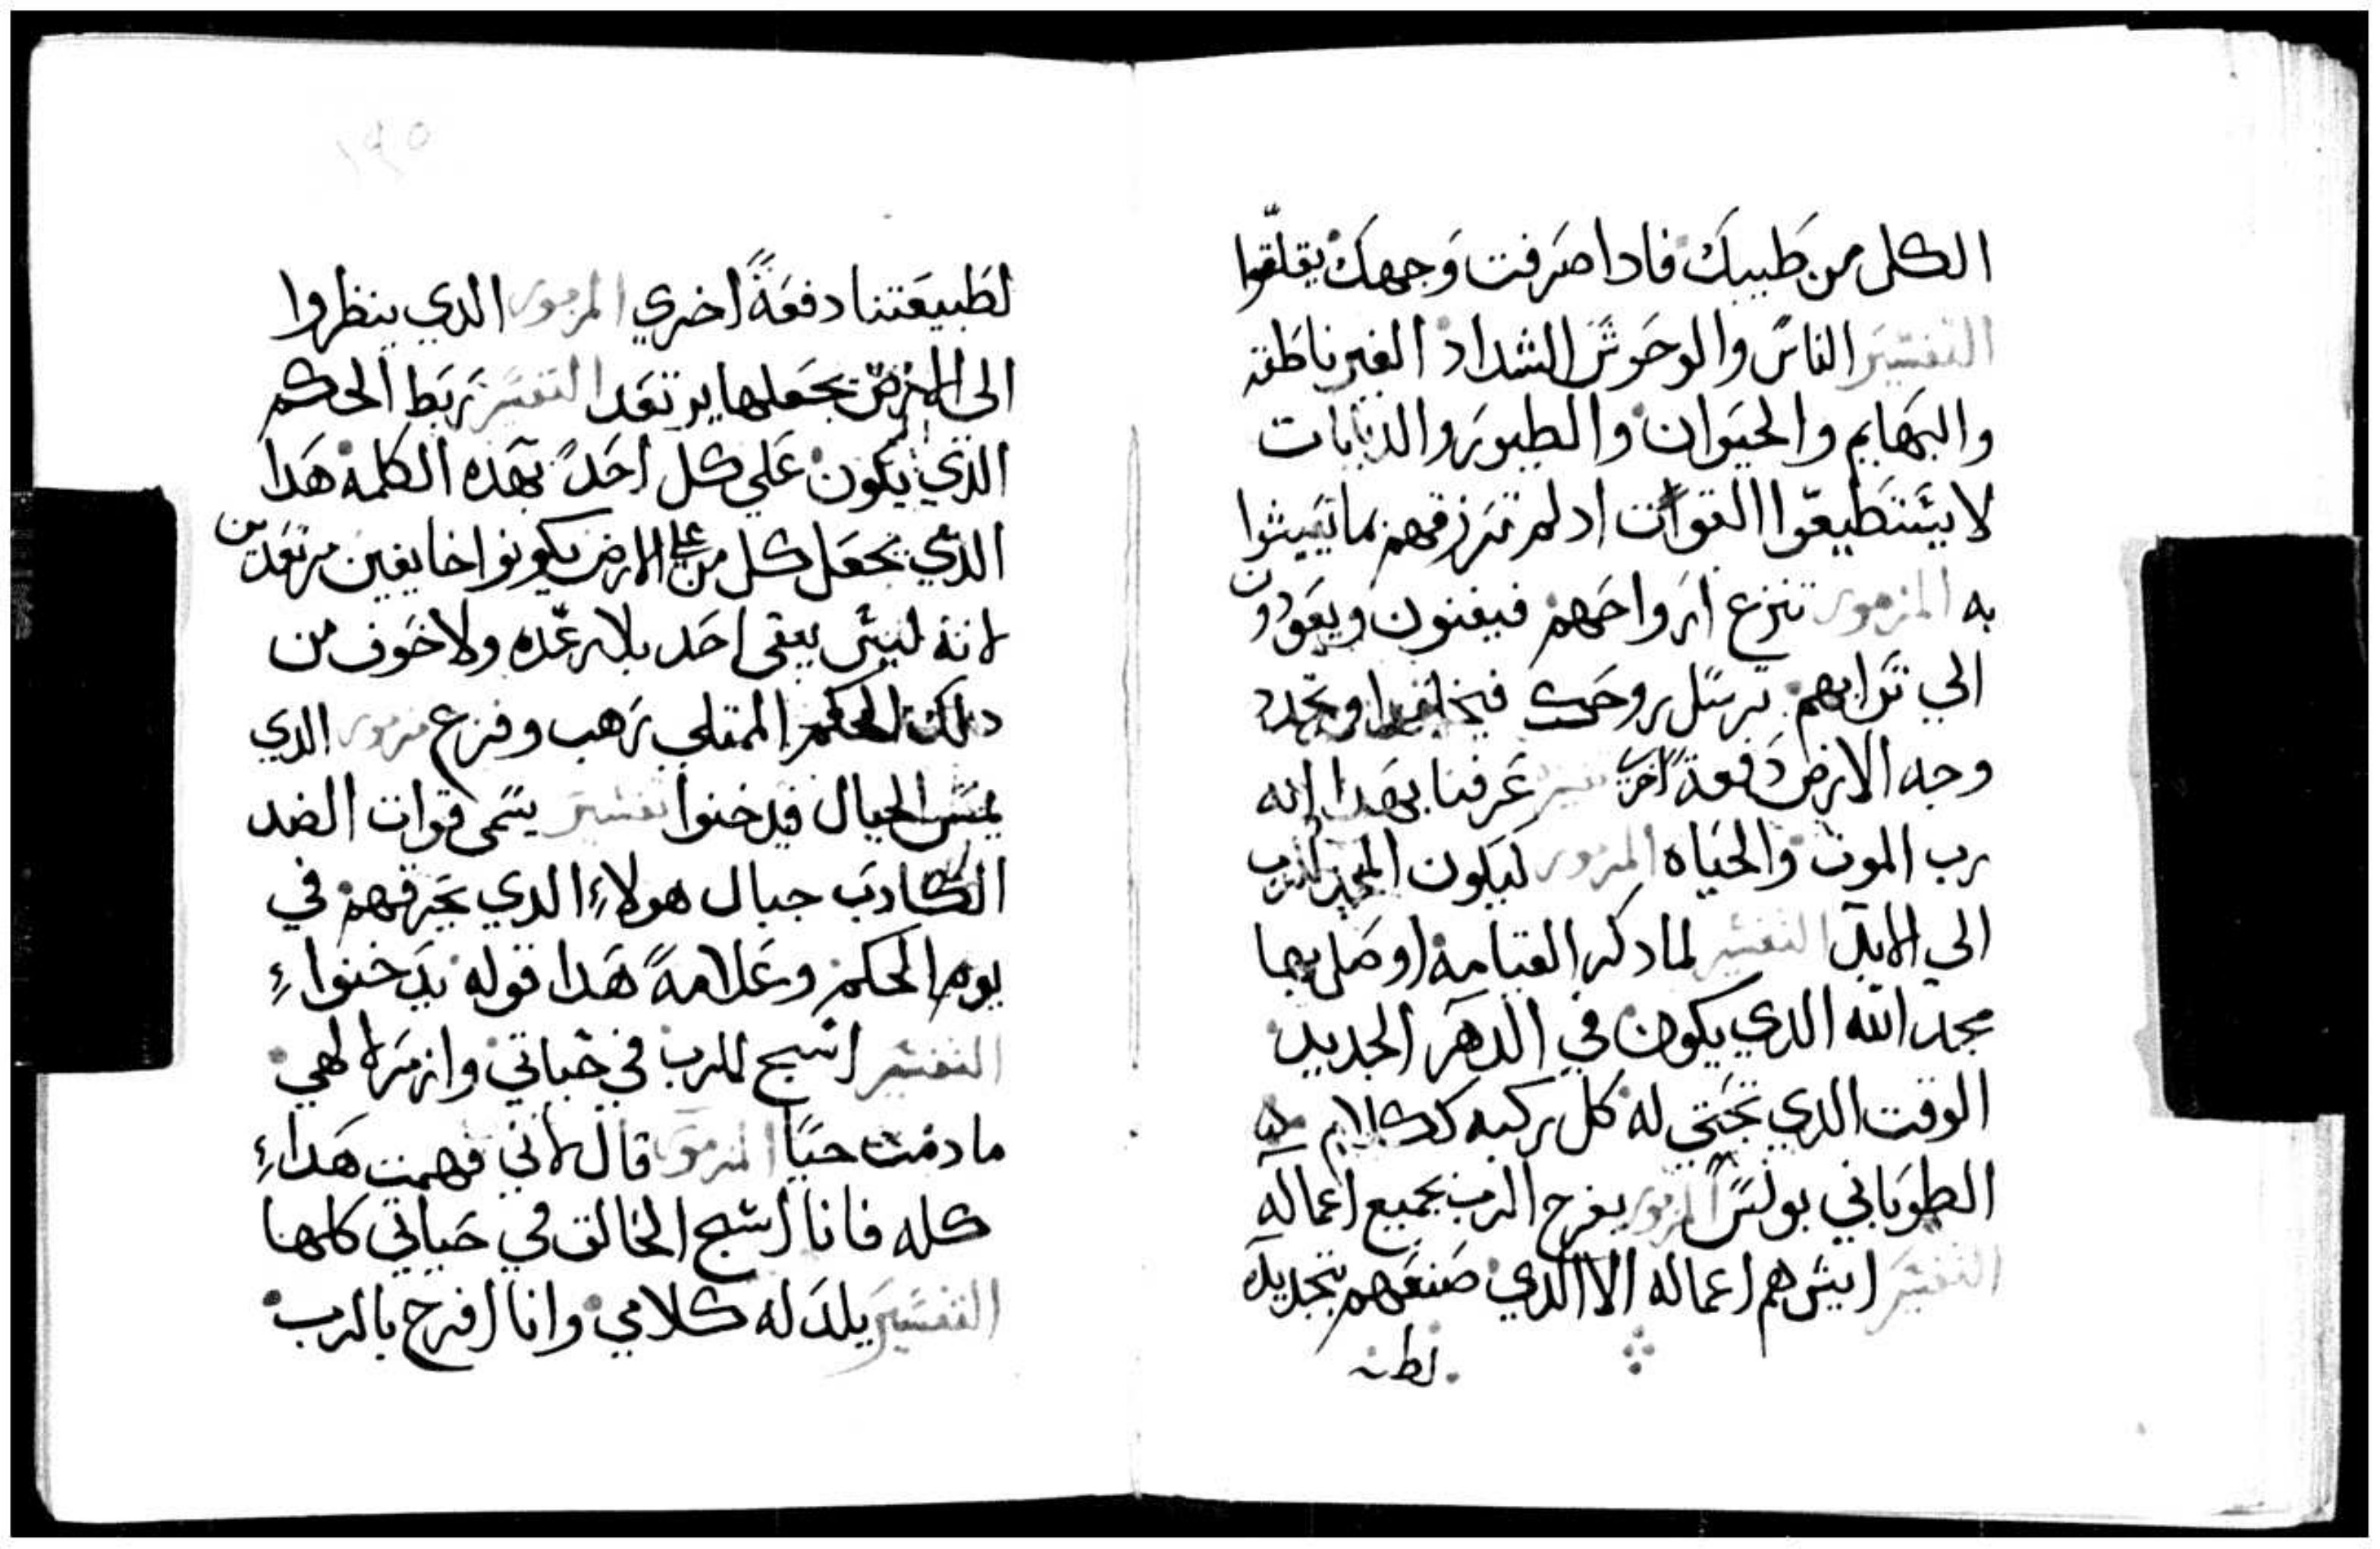 الكل من طيبك فادا صرفت وجهك يقلّقوا
التفسير الناس والوحوش الشداد الغير ناطقه
والبهايم والحيوان والطيور والدبابات
لا يستطيعوا القوات اد لم ترزقهم ما يعيشوا
به المزمور تنزع ارواحهم فيفنون ويعودون
الي ترابهم ترسل روحك فيخلقوا وتجدد
وجه الارض دفعةً اخرى تفسير عرفنا بهدا انه
رب الموت والحياه المزمور ليكون المجد للرب
الي الابد التفسير لما دكر القيامه اوصل بها
مجد الله الدي يكون في الدهر الجديد
الوقت الدي تجتي له كل ركبه ككلام
الطوباني بولس المزمور يفرح الرب بجميع اعماله
التفسير ايش هم اعماله الا الدي صنعهم بتجديد
١٩٥
لطبيعتنا دفعةً اخري المزمور الدي ينظروا
الى الارض يجعلها يرتعد التفسير ربط الحكم
الدي يكون علي كل احد بهده الكلمه هدا
الدي يجعل كل من على الارض يكونوا خايفين مرتعدين
لانه ليس يبقى احد بلا رعده ولا خوف من
دلك الحكم الممتلي رهب وفزع مزمور الدي
يمس الجبال فيدخنوا تفسير يسمى قوات الضد
الكادب جبال هولاء الدي يحرقهم في
يوم الحكم وعلامةً هدا قوله يدخنوا
التفسير اسبح للرب في حياتي وازمر لالهي
ما دمت حيًا المزمور قال لاني فهمت هدا
كله فانا اسبح الخالق في حياتي كلها
التفسير يلد له كلامي وانا افرح بالرب